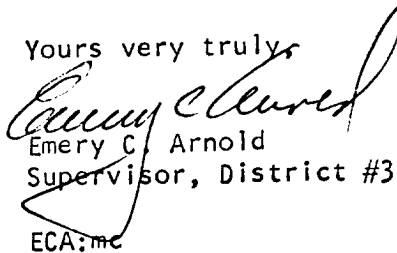 Yours very truly,
Emery C Arnold
Emery C. Arnold
Supervisor, District #3
ECA:mc